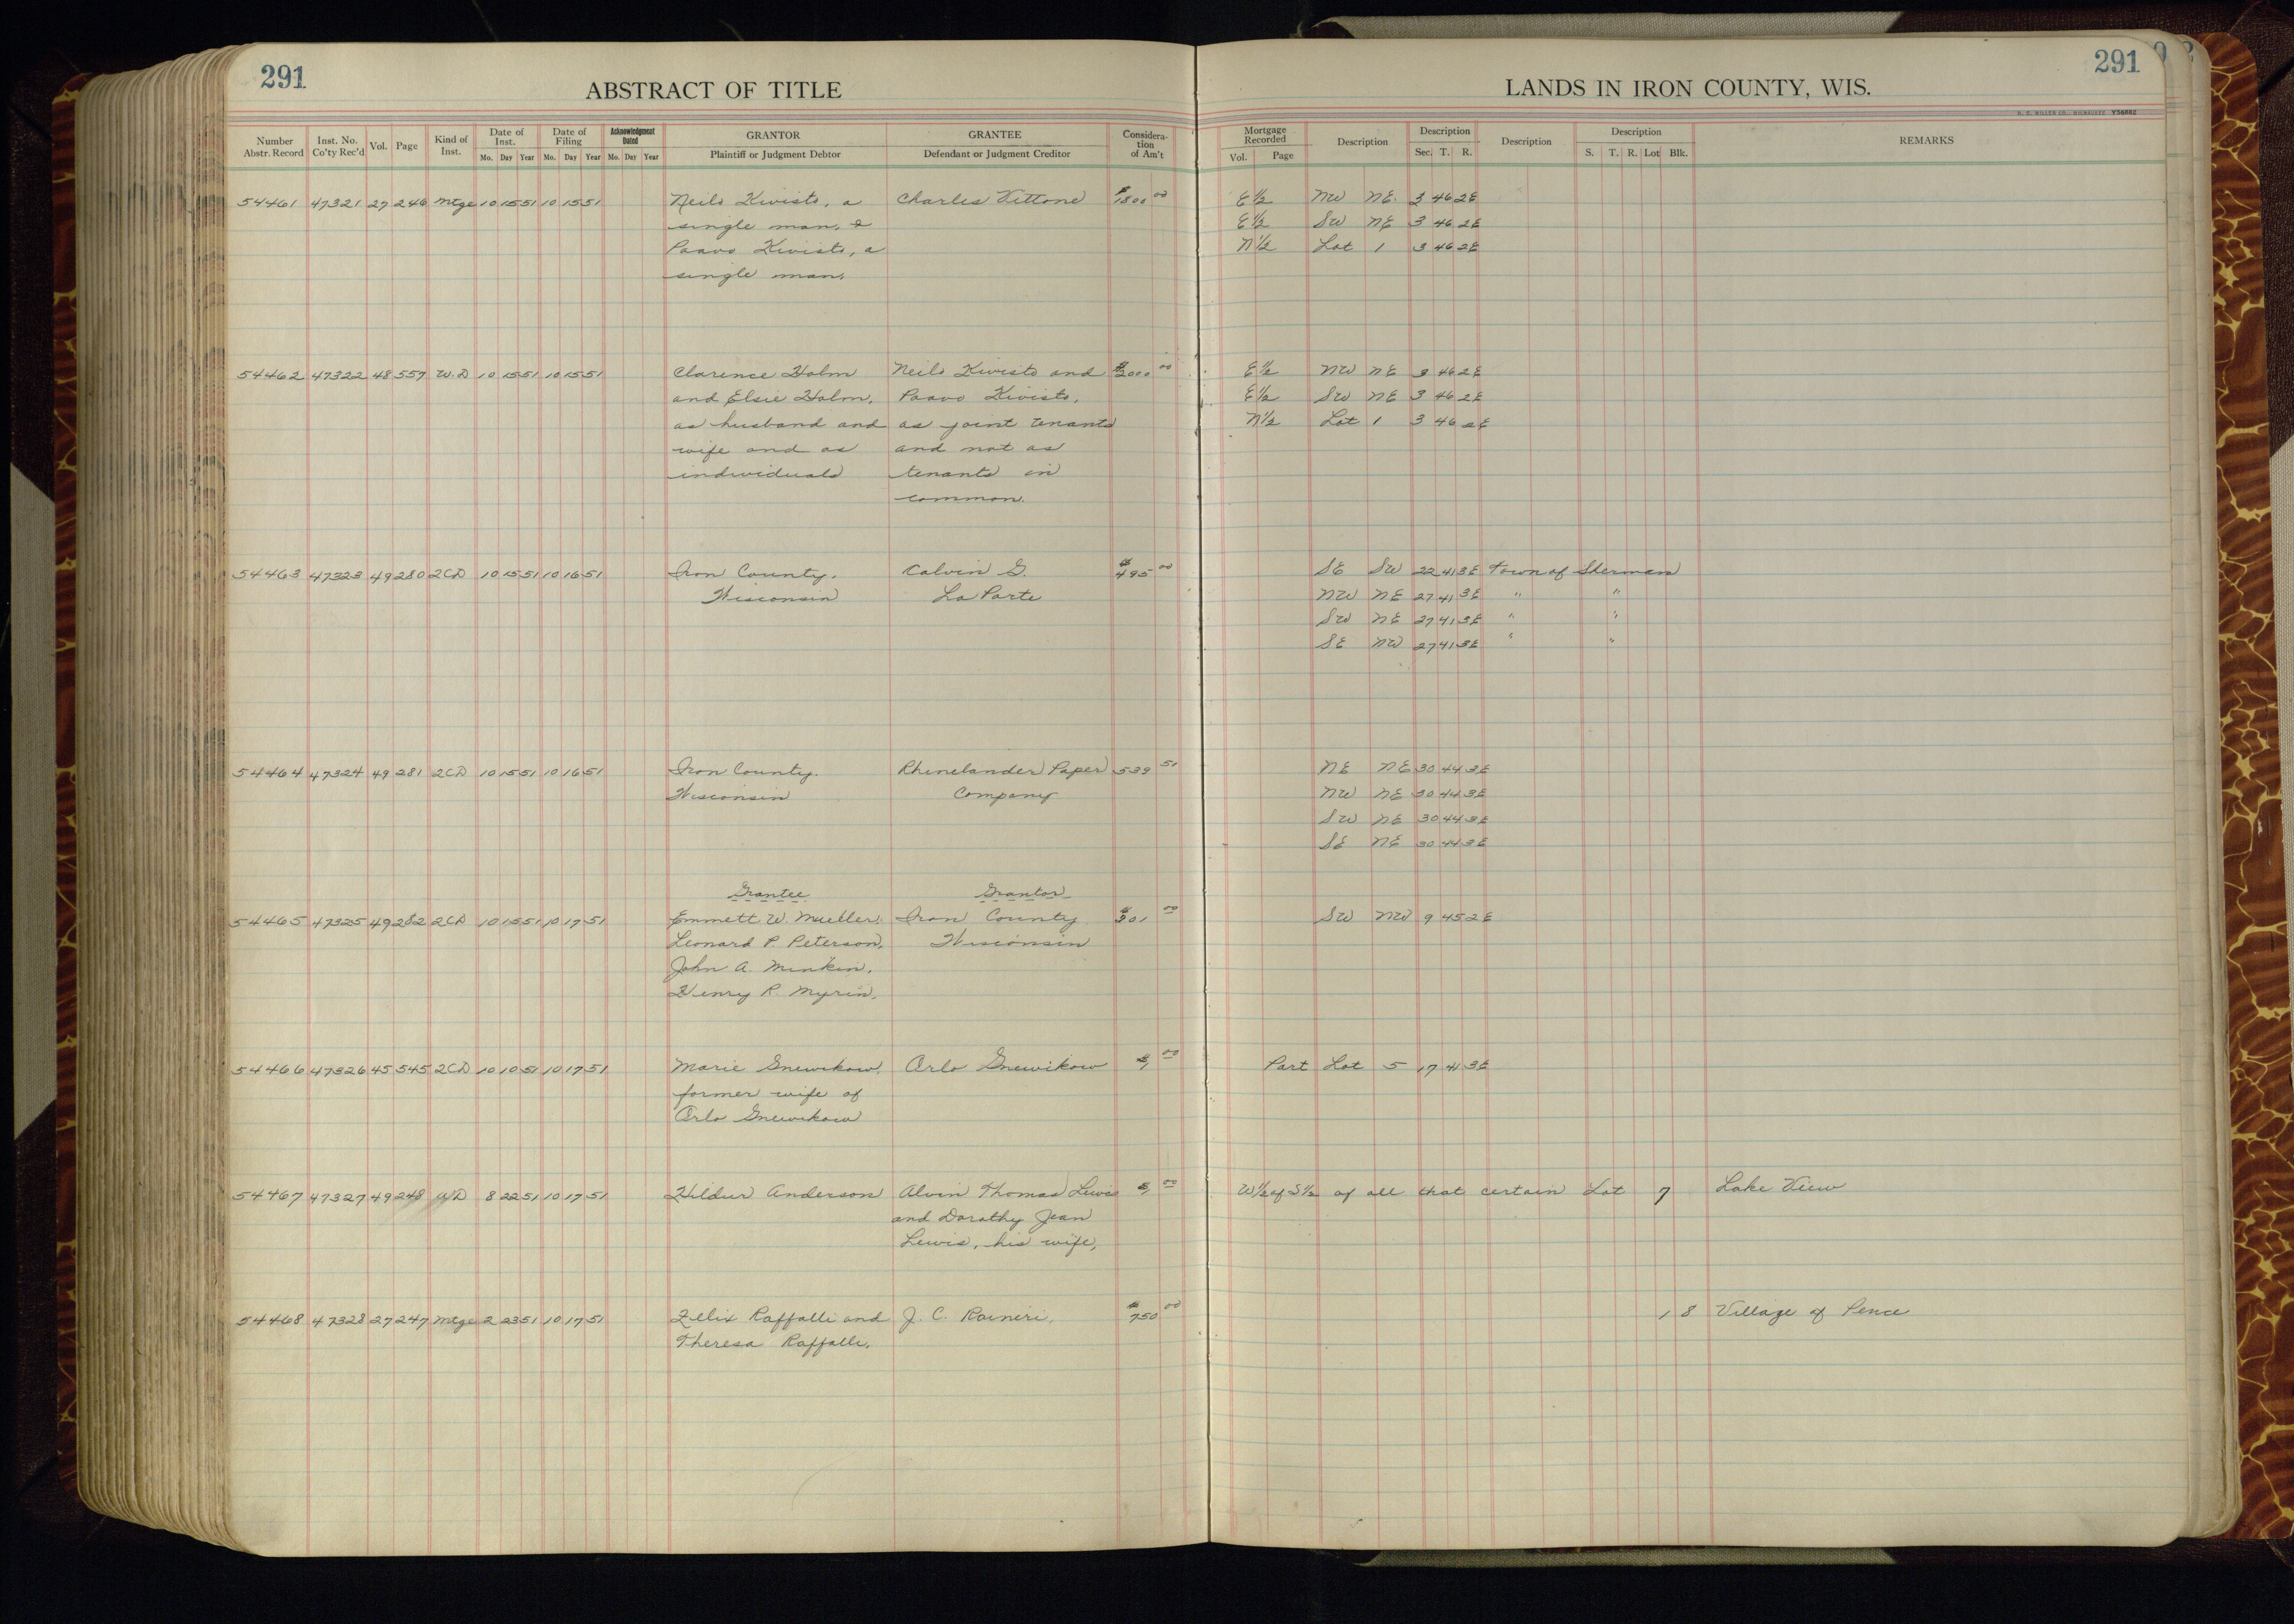 291
ABSTRACT OF TITLE
LANDS IN IRON COUNTY, WIS.
291
H. C. MILLER CO., MILWAUKEE Y56682
Number Abstr. Record | Inst. No. Co'ty Rec'd | Vol. | Page | Kind of Inst. | Date of Inst. Mo. Day Year | Date of Filing Mo. Day Year | Acknowledgment Dated Mo. Day Year | GRANTOR Plaintiff or Judgment Debtor | GRANTEE Defendant or Judgment Creditor | Considera-tion of Am't | Mortgage Recorded Vol. Page | Description | Description Sec. T. R. | Description | Description S. T. R. Lot Blk. | REMARKS
54461 47321 27 246 Mtge 10 15 51 10 15 51 Neilo Kivisto, a Charles Vittone $1800 00 E 1/2 NW NE 3 46 2E
single man, & E 1/2 SW NE 3 46 2E
Paavo Kivisto, a N 1/2 Lot 1 3 46 2E
single man.
54462 47322 48 557 W.D 10 15 51 10 15 51 Clarence Holm Neilo Kivisto and $2000 00 E 1/2 NW NE 3 46 2E
and Elsie Holm, Paavo Kivisto, E 1/2 SW NE 3 46 2E
as husband and as joint tenants N 1/2 Lot 1 3 46 2E
wife and as and not as
individuals tenants in
common.
54463 47323 49 280 2CD 10 15 51 10 16 51 Iron County, Calvin G. $495 00 SE SW 22 41 3E Town of Sherman
Wisconsin La Porte NW NE 27 41 3E " "
SW NE 27 41 3E " "
SE NW 27 41 3E " "
54464 47324 49 281 2CD 10 15 51 10 16 51 Iron County. Rhinelander Paper 539 51 NE NE 30 44 3E
Wisconsin Company NW NE 30 44 3E
SW NE 30 44 3E
SE NE 30 44 3E
Grantee Grantor
54465 47325 49 282 2CD 10 15 51 10 17 51 Emmett W. Mueller, Iron County $301 00 SW NW 9 45 2E
Leonard P. Peterson, Wisconsin
John A. Minkin,
Henry R. Myrin.
54466 47326 45 545 2CD 10 10 51 10 17 51 Marie Gnewikow, Arlo Gnewikow $1 00 Part Lot 5 17 41 3E
former wife of
Arlo Gnewikow
54467 47327 49 248 W/D 8 22 51 10 17 51 Hildur Anderson Alvin Thomas Lewis $1 00 W 1/2 of S 1/2 of all that certain Lot 7 Lake View
and Dorothy Jean
Lewis, his wife,
54468 47328 27 247 Mtge 2 23 51 10 17 51 Felix Raffalli and J. C. Raineri, $750 00 1 8 Village of Pence
Theresa Raffalli.